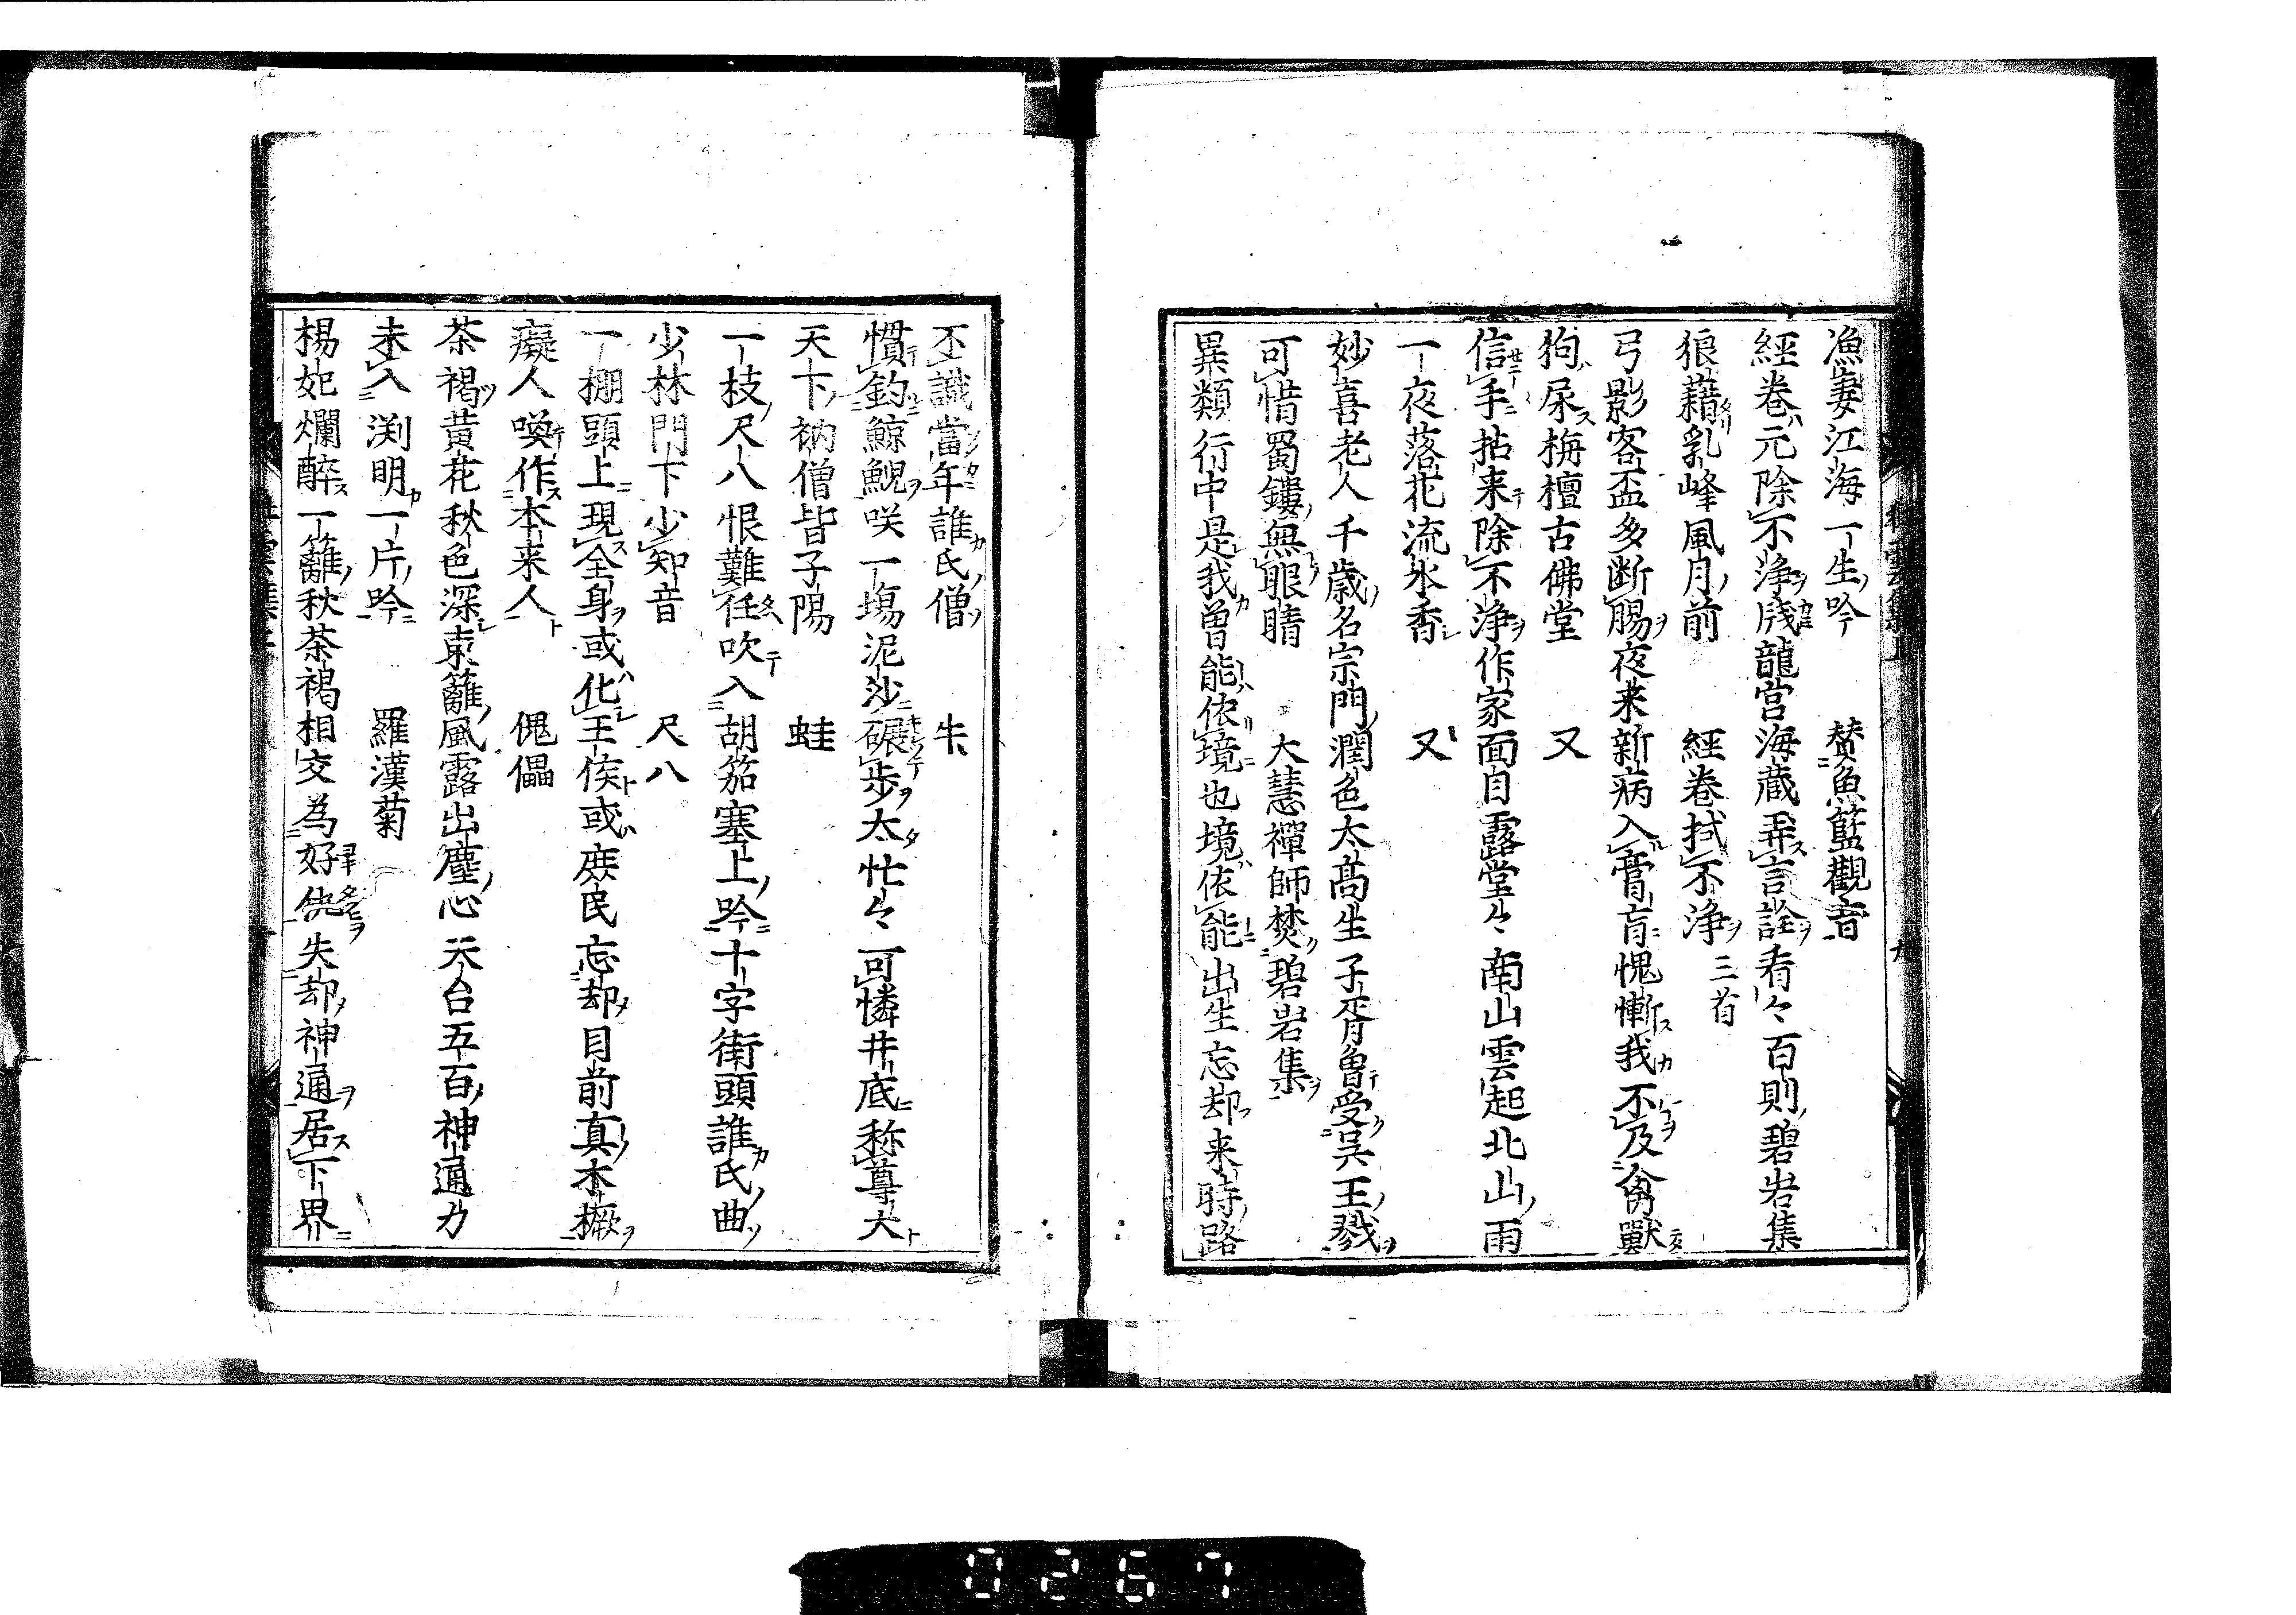 漁妻江海一生吟　賛魚籃觀音
經巻元除不浄牋龍宮海蔵弄言詮看々百則碧岩集
狼藉乳峰風月前　經巻拭不浄　三首
弓影客盃多断腸夜来新病入膏肓愧慚我不及禽獸
狗尿栴檀古佛堂　又
信手拈来除不浄作家面目露堂々南山雲起北山雨
一夜落花流水香　又
妙喜老人千歳名宗門潤色太髙生子胥魯受呉王戮
可惜蜀鏤無眼睛　大慧禪師焚碧岩集
異類行中是我曽能依境也境依能出生忘却来時路
不識當年誰氏僧　牛
慣釣鯨鯢咲一場泥沙碾歩太忙々可憐井底称尊大
天下衲僧皆子陽　蛙
一枝尺八恨難任吹入胡笳塞上吟十字街頭誰氏曲
少林門下少知音　尺八
一棚頭上現全身或化王侯或庶民忘却目前真木橛
癡人喚作本来人　傀儡
茶褐黄花秋色深東籬風露出塵心天台五百神通力
未入渕明一片吟　羅漢菊
楊妃爛醉一籬秋茶褐相交為好仇失却神通居下界
0267